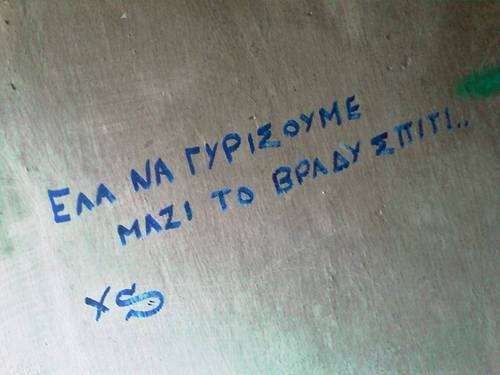 ΕΛΑ ΝΑ ΓΥΡΙΣΟΥΜΕ
ΜΑΖΙ ΤΟ ΒΡΑΔΥ ΣΠΙΤΙ..